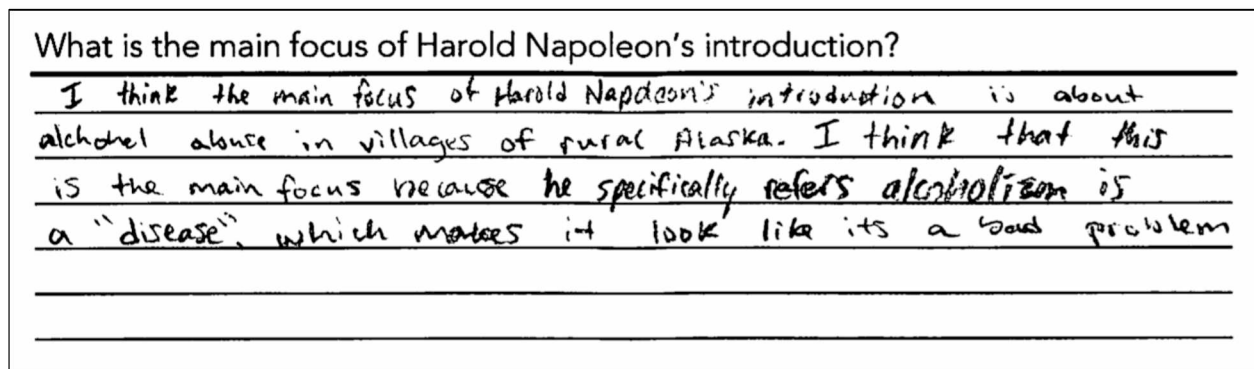 What is the main focus of Harold Napoleon's introduction?
I think the main focus of Harold Napoleon's introduction is about
alchohel abuse in villages of rural Alaska. I think that this
is the main focus because he specifically refers alcoholism is
a "disease", which makes it look like its a bad problem